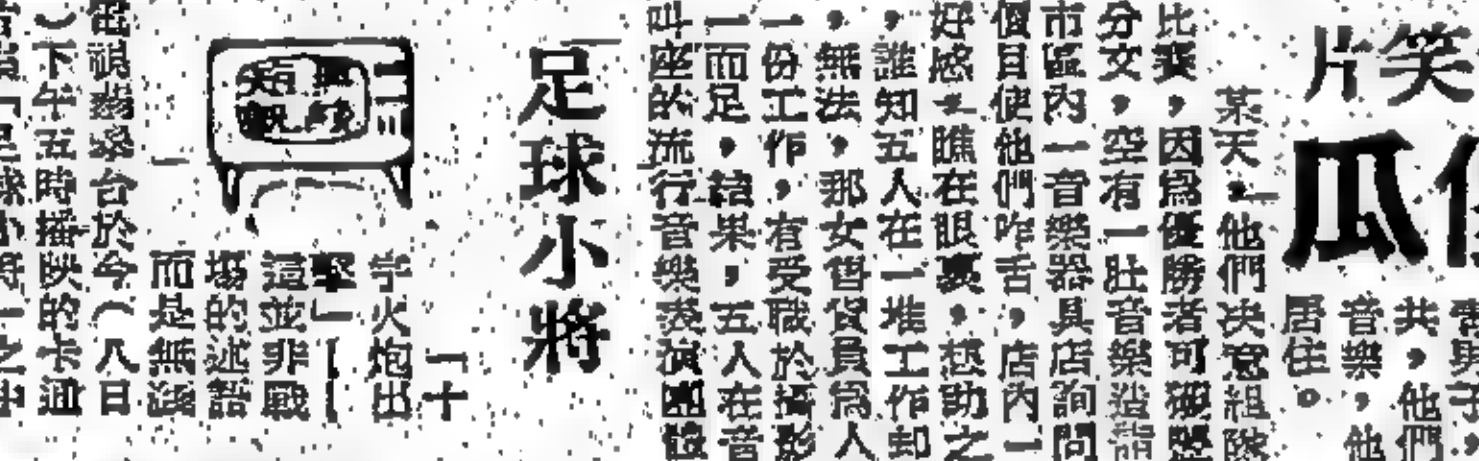 笑
片
瓜
共，他們
音樂，他
居住。
某天，他們決意組隊
比賽，因為優勝者可
分文，空有一肚音樂造詣
市區內一音樂器具店詢問
價目使他們咋舌，店內一
好感，瞧在眼裏，想助之
，誰知五人在一堆工作却
，無法，那女售貨員為人
一份工作，有受職於攝影
一而足，結果，五人在音
叫座的流行音樂表演團體
足球小將
「十
字火炮出
擊」—
這並非戰
場的述語
而是無綫
電視翡翠台於今（八日
）下午五時播映的卡通
「足球小將」之中